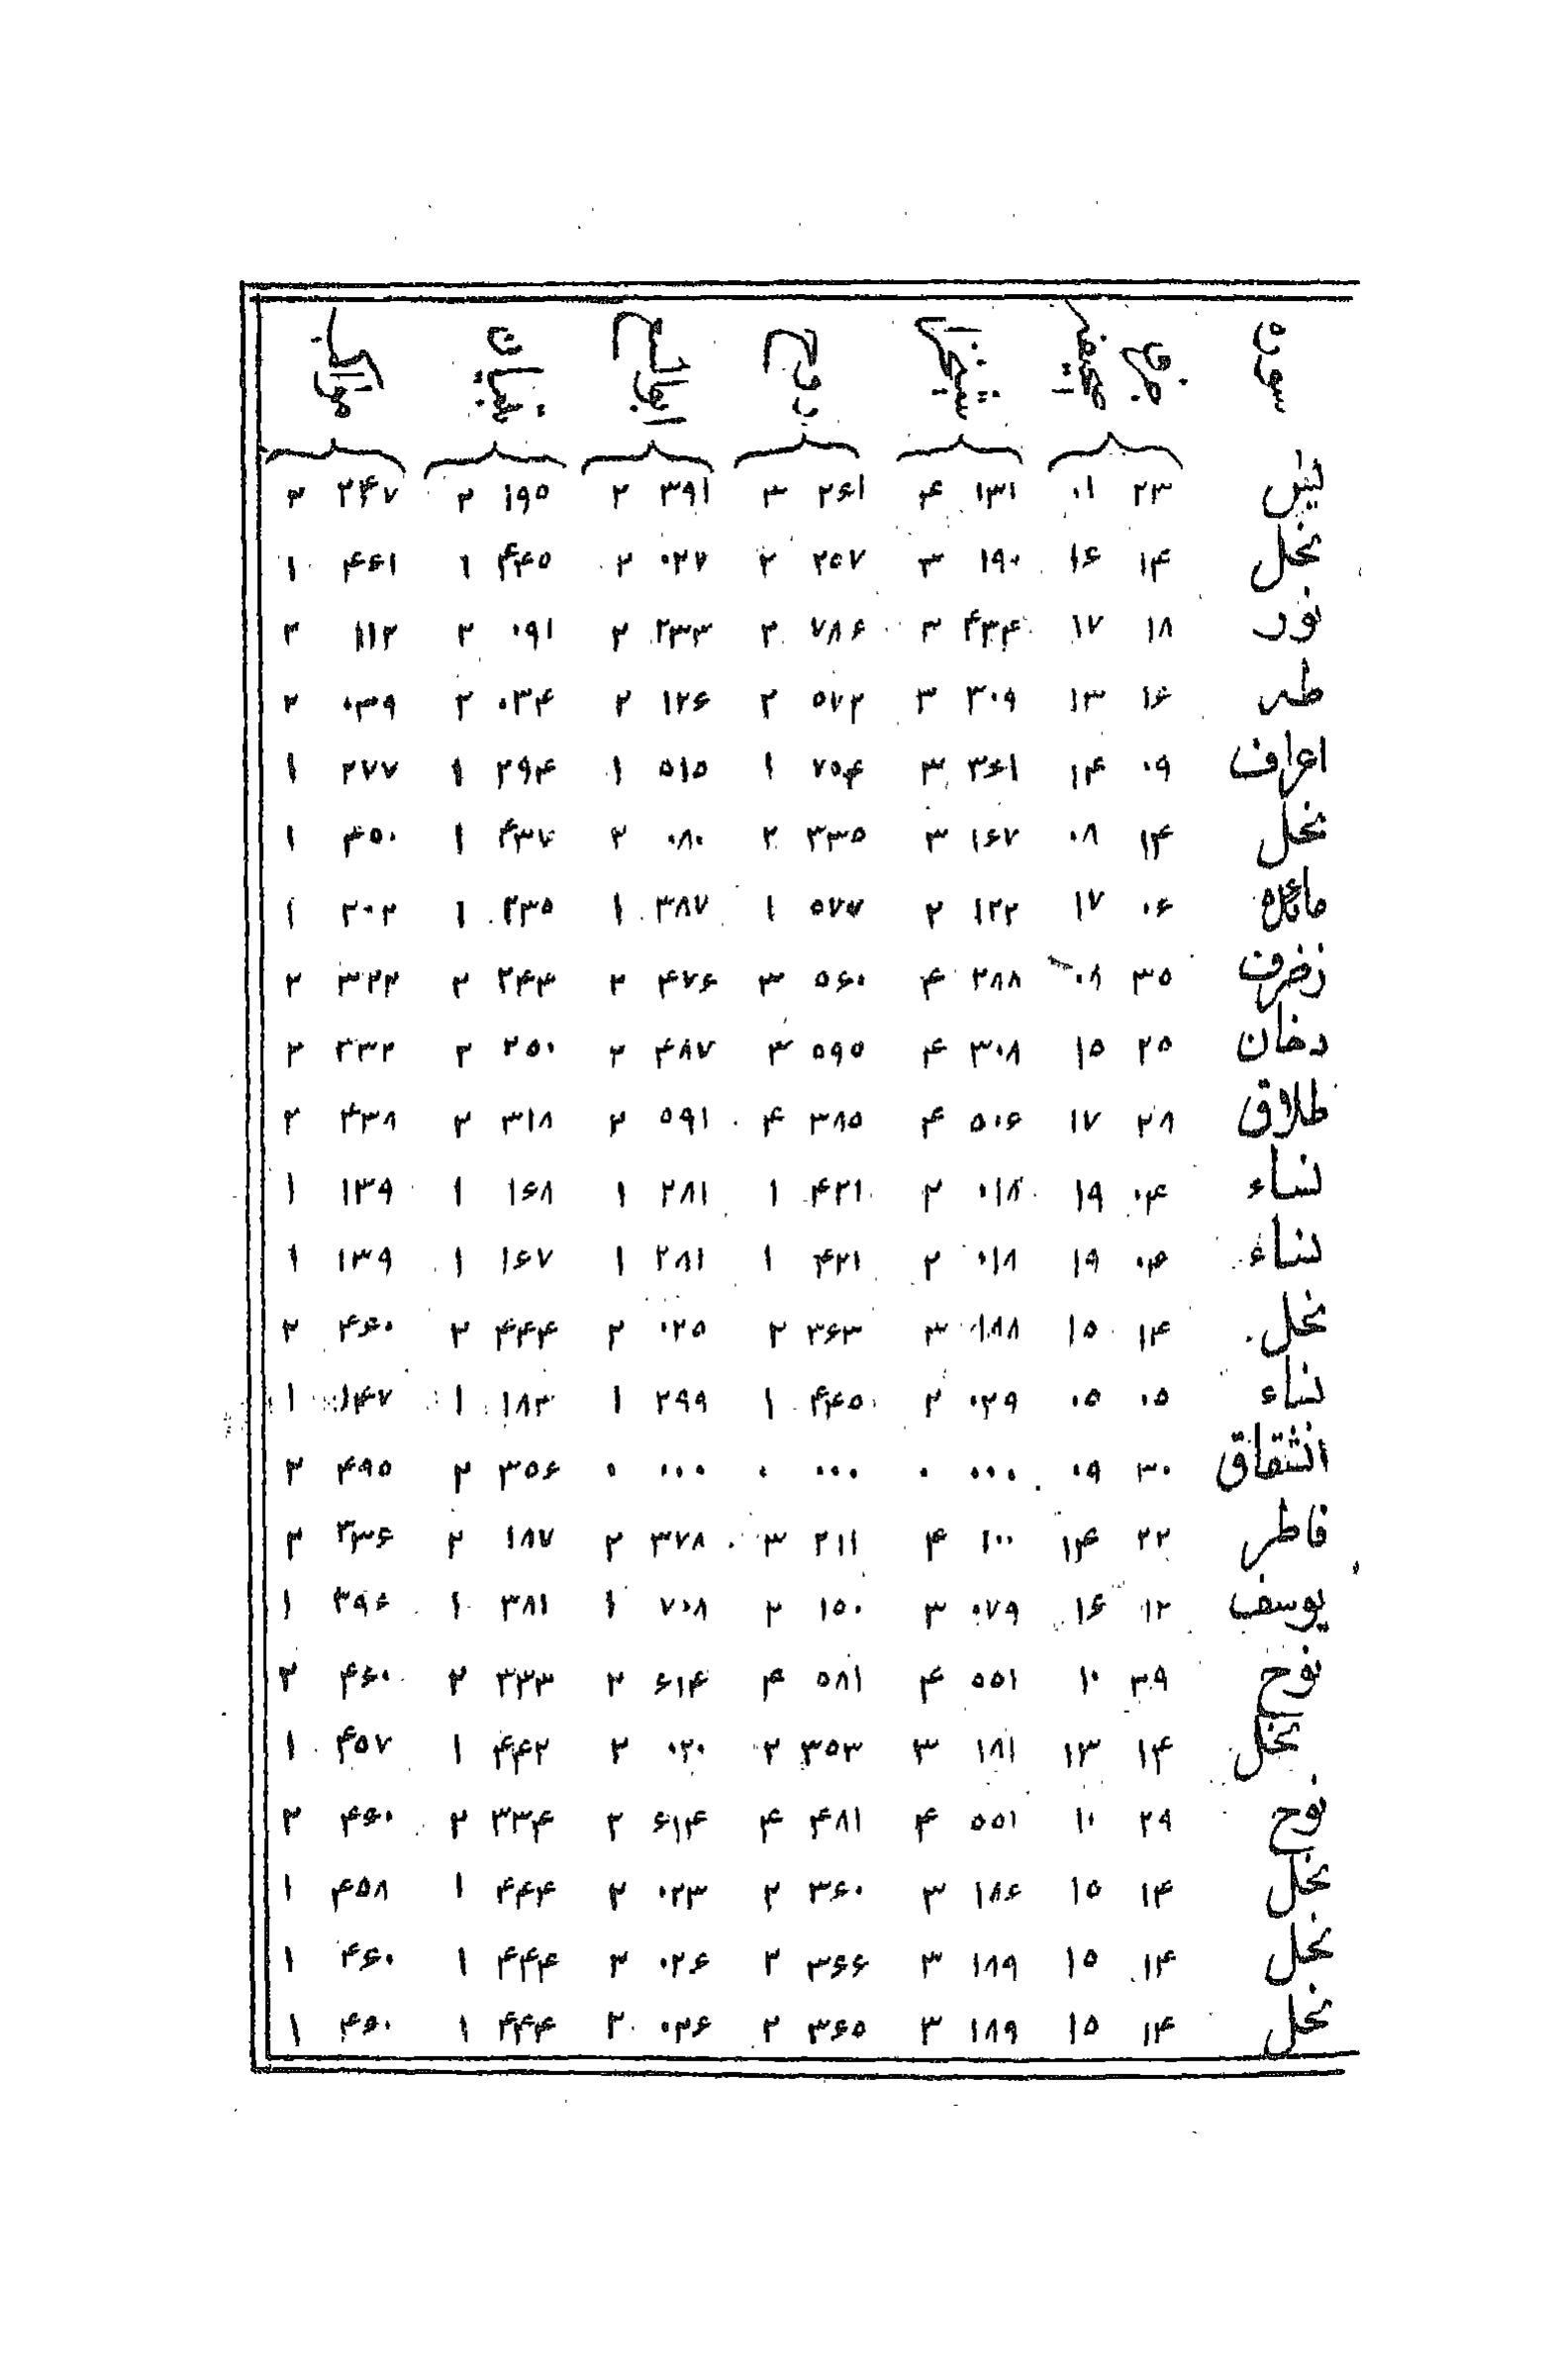 سوره
یس ۲۳ ۰۱ ۱۳۱ ۴ ۲۶۱ ۳ ۳۹۱ ۲ ۱۹۵ ۲ ۲۴۷ ۲
نحل ۱۴ ۱۶ ۱۹۰ ۳ ۲۵۷ ۲ ۰۲۷ ۲ ۴۴۵ ۱ ۴۶۱ ۱
نور ۱۸ ۱۷ ۴۳۴ ۳ ۷۸۶ ۲ ۲۳۳ ۲ ۰۹۱ ۲ ۱۱۲ ۲
طه ۱۶ ۱۳ ۳۰۹ ۳ ۵۷۲ ۲ ۱۲۶ ۲ ۰۳۴ ۲ ۰۳۹ ۲
اعراف ۰۹ ۱۴ ۳۶۱ ۳ ۷۵۴ ۱ ۵۱۵ ۱ ۲۹۴ ۱ ۲۷۷ ۱
نحل ۱۴ ۰۸ ۱۶۷ ۳ ۳۳۵ ۲ ۰۸۰ ۲ ۴۳۷ ۱ ۴۵۰ ۱
مائده ۰۶ ۱۷ ۱۲۲ ۲ ۵۷۷ ۱ ۳۸۷ ۱ ۲۳۵ ۱ ۲۰۲ ۱
زخرف ۳۵ ۰۸ ۲۸۸ ۴ ۵۶۰ ۳ ۴۷۶ ۲ ۲۴۴ ۲ ۳۲۲ ۲
دخان ۲۵ ۱۵ ۳۰۸ ۴ ۵۹۵ ۳ ۴۸۷ ۲ ۲۵۰ ۲ ۳۳۲ ۲
طلاق ۲۸ ۱۷ ۵۰۶ ۴ ۳۸۵ ۴ ۵۹۱ ۲ ۳۱۸ ۲ ۴۳۸ ۲
نساء ۰۴ ۱۹ ۰۱۸ ۲ ۴۲۱ ۱ ۲۸۱ ۱ ۱۶۸ ۱ ۱۳۹ ۱
نساء ۰۴ ۱۹ ۰۱۸ ۲ ۴۲۱ ۱ ۲۸۱ ۱ ۱۶۷ ۱ ۱۳۹ ۱
نحل ۱۴ ۱۵ ۱۸۸ ۳ ۳۶۳ ۲ ۰۲۵ ۲ ۴۴۴ ۲ ۴۶۰ ۲
نساء ۰۵ ۰۵ ۰۲۹ ۲ ۴۴۵ ۱ ۲۹۹ ۱ ۱۸۳ ۱ ۱۴۷ ۱
انشقاق ۳۰ ۰۹ ۰۰۰ ۰ ۰۰۰ ۰ ۰۰۰ ۰ ۳۵۶ ۲ ۴۹۵ ۲
فاطر ۲۲ ۱۴ ۱۰۰ ۴ ۲۱۱ ۳ ۳۷۸ ۲ ۱۸۷ ۲ ۲۳۶ ۲
یوسف ۱۲ ۱۶ ۰۷۹ ۳ ۱۵۰ ۲ ۷۰۸ ۱ ۳۸۱ ۱ ۳۹۶ ۱
نوح ۳۹ ۱۰ ۵۵۱ ۴ ۵۸۱ ۴ ۶۱۴ ۲ ۳۳۳ ۲ ۴۶۰ ۲
نحل ۱۴ ۱۳ ۱۸۱ ۳ ۳۵۳ ۲ ۰۲۰ ۲ ۴۴۲ ۱ ۴۵۷ ۱
نوح ۲۹ ۱۰ ۵۵۱ ۴ ۴۸۱ ۴ ۶۱۴ ۲ ۳۳۴ ۲ ۴۶۰ ۲
نحل ۱۴ ۱۵ ۱۸۶ ۳ ۳۶۰ ۲ ۰۲۳ ۲ ۴۴۴ ۱ ۴۵۸ ۱
نحل ۱۴ ۱۵ ۱۸۹ ۳ ۳۶۶ ۲ ۰۲۶ ۲ ۴۴۴ ۱ ۴۶۰ ۱
نحل ۱۴ ۱۵ ۱۸۹ ۳ ۳۶۵ ۲ ۰۲۶ ۲ ۴۴۴ ۱ ۴۶۰ ۱